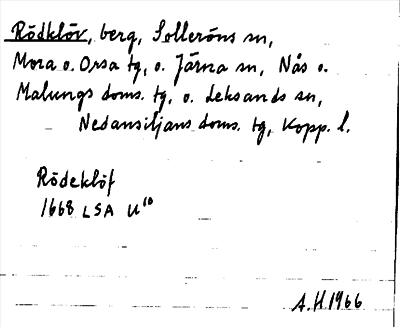 Rödklöv, berg, Solleröns sn,
Mora o. Orsa tg, o. Järna sn, Nås o.
Malungs doms. tg, o. Leksands sn,
Nedansiljans doms. tg, Kopp. l.
Rödeklöf
1668 LSA U¹⁰
A.H 1966